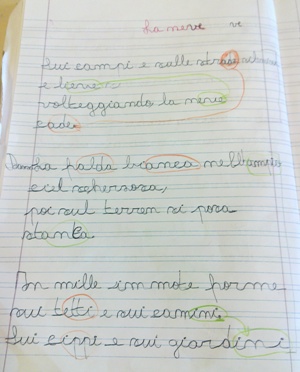 La neve
Sui campi e sulle strade
e lieve
volteggiando la neve
cade.
falda bianca
e il scherzosa,
poi sul terren si posa
stanca.
In mille im mote forme
sui tetti e sui camini.
Sui cippi e sui giardini.